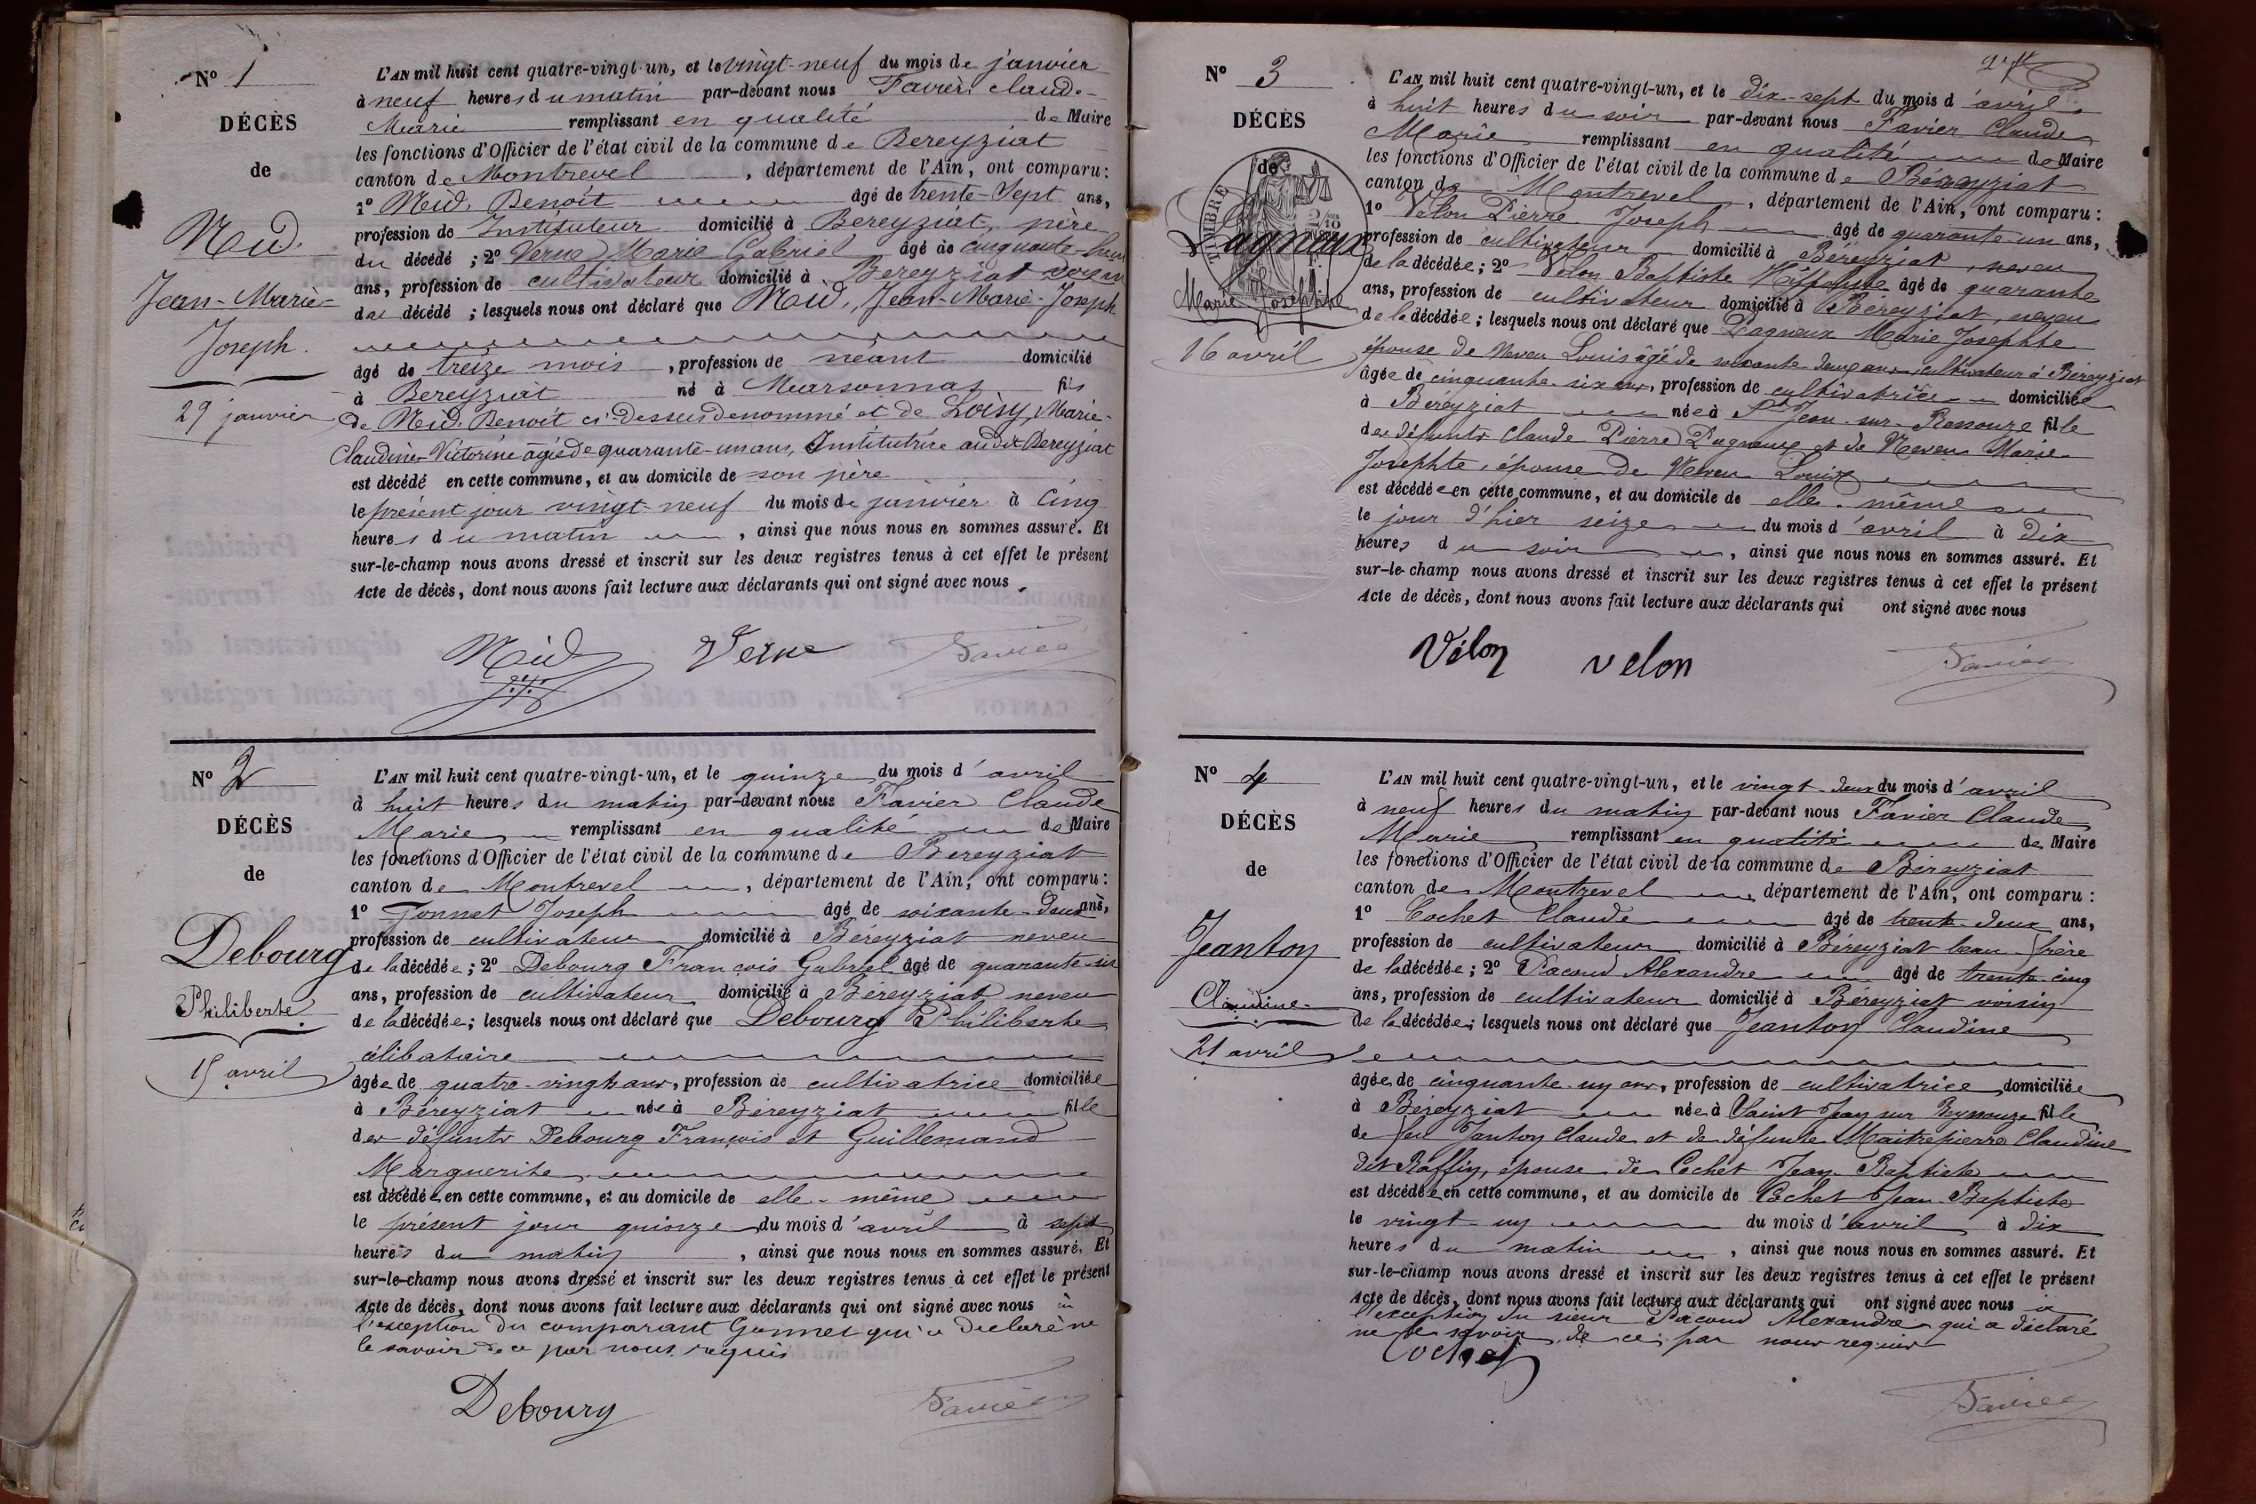 No 1
DÉCÈS
de
Nid.
Jean-Marie-
Joseph.
29 janvier
L'AN mil huit cent quatre-vingt-un, et le vingt-neuf du mois de janvier
à neuf heures du matin par-devant nous Favier Claude-
Marie remplissant en qualité de Maire
les fonctions d'Officier de l'état civil de la commune de Bereyziat
canton de Montrevel, département de l'Ain, ont comparu:
1o Nid. Benoît âgé de trente-sept ans,
profession de Instituteur domicilié à Bereyziat, père
du décédé ; 2o Verne Marie Gabriel âgé de cinquante-
ans, profession de cultivateur domicilié à Bereyziat voisin
du décédé ; lesquels nous ont déclaré que Nid, Jean-Marie-Joseph
âgé de treize mois, profession de néant domicilié
à Bereyziat né à Marsonnas fils
de Nid. Benoît ci-dessus denommé et de Loisy, Marie-
Claudine-Victorine âgée de quarante-un ans, Institutrice audit Bereyziat
est décédé en cette commune, et au domicile de son père
le présent jour vingt-neuf du mois de janvier à cinq
heures du matin, ainsi que nous nous en sommes assuré. Et
sur-le-champ nous avons dressé et inscrit sur les deux registres tenus à cet effet le présent
Acte de décès, dont nous avons fait lecture aux déclarants qui ont signé avec nous.
Nid Verne Favier
No 2
DÉCÈS
de
Debourg
Philiberte
15 avril
L'AN mil huit cent quatre-vingt-un, et le quinze du mois d'avril
à huit heures du matin par-devant nous Favier Claude
Marie remplissant en qualité de Maire
les fonctions d'Officier de l'état civil de la commune de Bereyziat
canton de Montrevel, département de l'Ain, ont comparu:
1o Gonnet Joseph âgé de soixante-deux ans,
profession de cultivateur domicilié à Béreyziat neveu
de la décédée; 2o Debourg François Gabriel âgé de quarante-six
ans, profession de cultivateur domicilié à Béreyziat neveu
de la décédée; lesquels nous ont déclaré que Debourg Philiberte
célibataire
âgée de quatre-vingt ans, profession de cultivatrice domiciliée
à Béreyziat née à Béreyziat fille
des défunts Debourg François et Guillemaud
Marguerite
est décédée en cette commune, et au domicile de elle-même
le présent jour quinze du mois d'avril à sept
heures du matin, ainsi que nous nous en sommes assuré. Et
sur-le-champ nous avons dressé et inscrit sur les deux registres tenus à cet effet le présent
Acte de décès, dont nous avons fait lecture aux déclarants qui ont signé avec nous à
l'exception du comparant Gonnet qui a déclaré ne
le savoir de ce par nous requis
Debourg Favier
No 3
DÉCÈS
de
TIMBRE
Lagneux
Marie Josephte
16 avril
L'AN mil huit cent quatre-vingt-un, et le dix-sept du mois d'avril
à huit heures du soir par-devant nous Favier Claude
Marie remplissant en qualité de Maire
les fonctions d'Officier de l'état civil de la commune de Béreyziat
canton de Montrevel, département de l'Ain, ont comparu:
1o Velon Pierre Joseph âgé de quarante-un ans,
profession de cultivateur domicilié à Béreyziat, neveu
de la décédée; 2o Velon Baptiste Hippolyte âgé de quarante
ans, profession de cultivateur domicilié à Béreyziat, neveu
de la décédée; lesquels nous ont déclaré que Lagneux Marie Josephte
épouse de Neveu Louis âgé de soixante deux ans, cultivateur à Béreyziat
âgée de cinquante-six ans, profession de cultivatrice domiciliée
à Béreyziat née à St Jean-sur-Ressouze fille
des défunts Claude Pierre Lagneux et de Neveu Marie
Josephte, épouse de Neveu Louis
est décédée en cette commune, et au domicile de elle-même
le jour d'hier seize du mois d'avril à dix
heures du soir, ainsi que nous nous en sommes assuré. Et
sur-le-champ nous avons dressé et inscrit sur les deux registres tenus à cet effet le présent
Acte de décès, dont nous avons fait lecture aux déclarants qui ont signé avec nous
Vélon velon Favier
No 4
DÉCÈS
de
Jeanton
Claudine
21 avril
L'AN mil huit cent quatre-vingt-un, et le vingt-deux du mois d'avril
à neuf heures du matin par-devant nous Favier Claude
Marie remplissant en qualité de Maire
les fonctions d'Officier de l'état civil de la commune de Béreyziat
canton de Montrevel, département de l'Ain, ont comparu:
1o Cochet Claude âgé de trente-deux ans,
profession de cultivateur domicilié à Béreyziat beau-frère
de la décédée; 2o Pacoud Alexandre âgé de trente-cinq
ans, profession de cultivateur domicilié à Béreyziat voisin
de la décédée; lesquels nous ont déclaré que Jeanton Claudine
âgée de cinquante-un ans, profession de cultivatrice domiciliée
à Béreyziat née à Saint Jean sur Reyssouze fille
de feu Janton Claude et de défunte Maitrepierre Claudine
dit Raffin, épouse de Cochet Jean-Baptiste
est décédée en cette commune, et au domicile de Cochet Jean-Baptiste
le vingt-un du mois d'avril à dix
heures du matin, ainsi que nous nous en sommes assuré. Et
sur-le-champ nous avons dressé et inscrit sur les deux registres tenus à cet effet le présent
Acte de décès, dont nous avons fait lecture aux déclarants qui ont signé avec nous à
l'exception du sieur Pacoud Alexandre qui a déclaré
ne le savoir de ce par nous requis
Cochet Favier